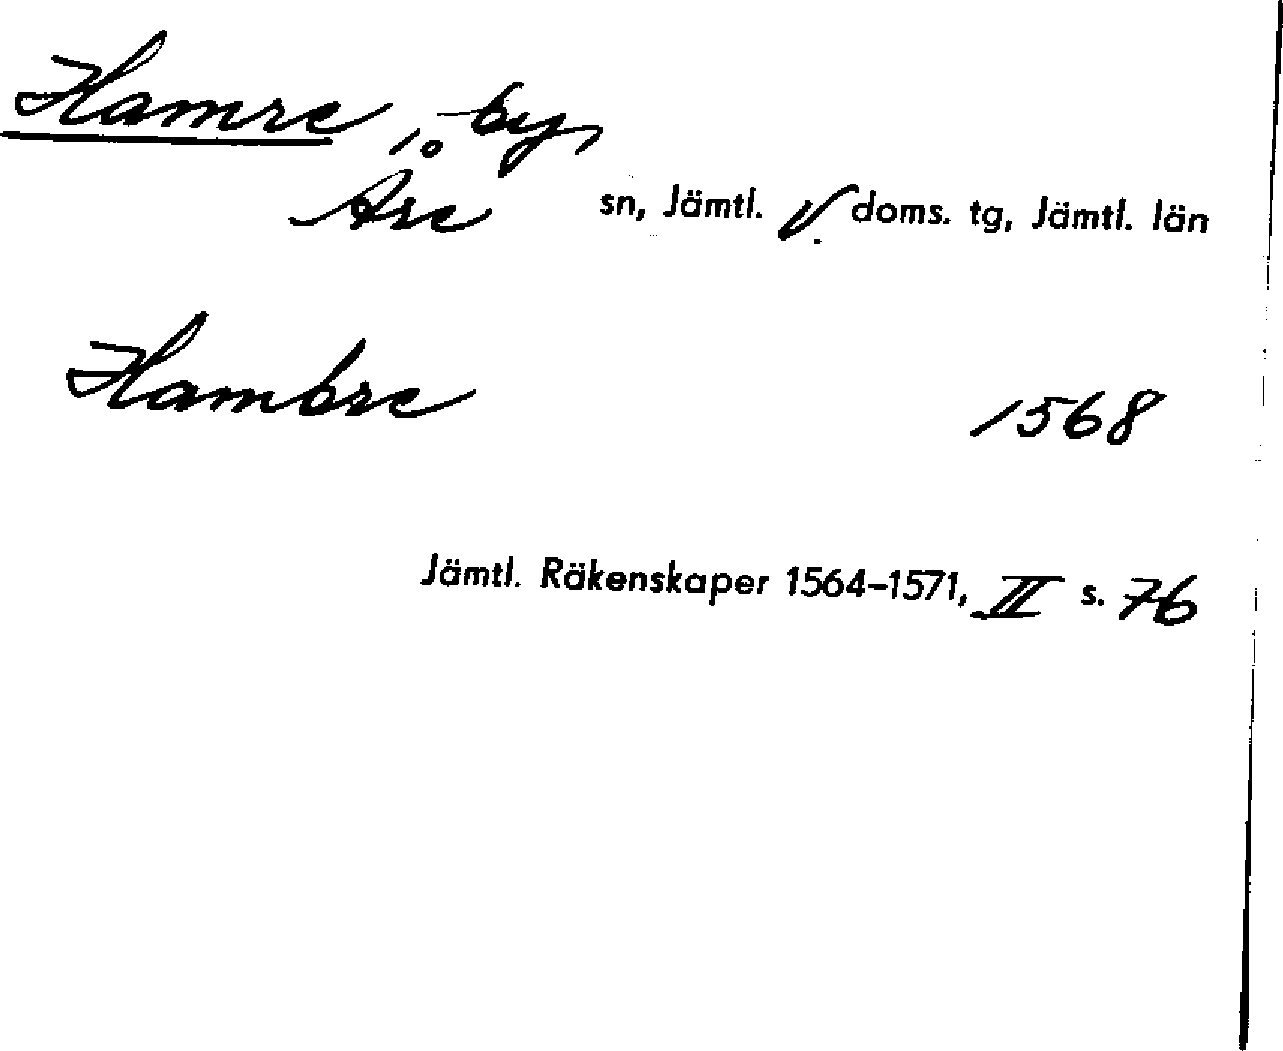 Hamre, by,
Åre sn, Jämtl. V. doms. tg, Jämtl. län
Hambre 1568
Jämtl. Räkenskaper 1564-1571, II s. 76